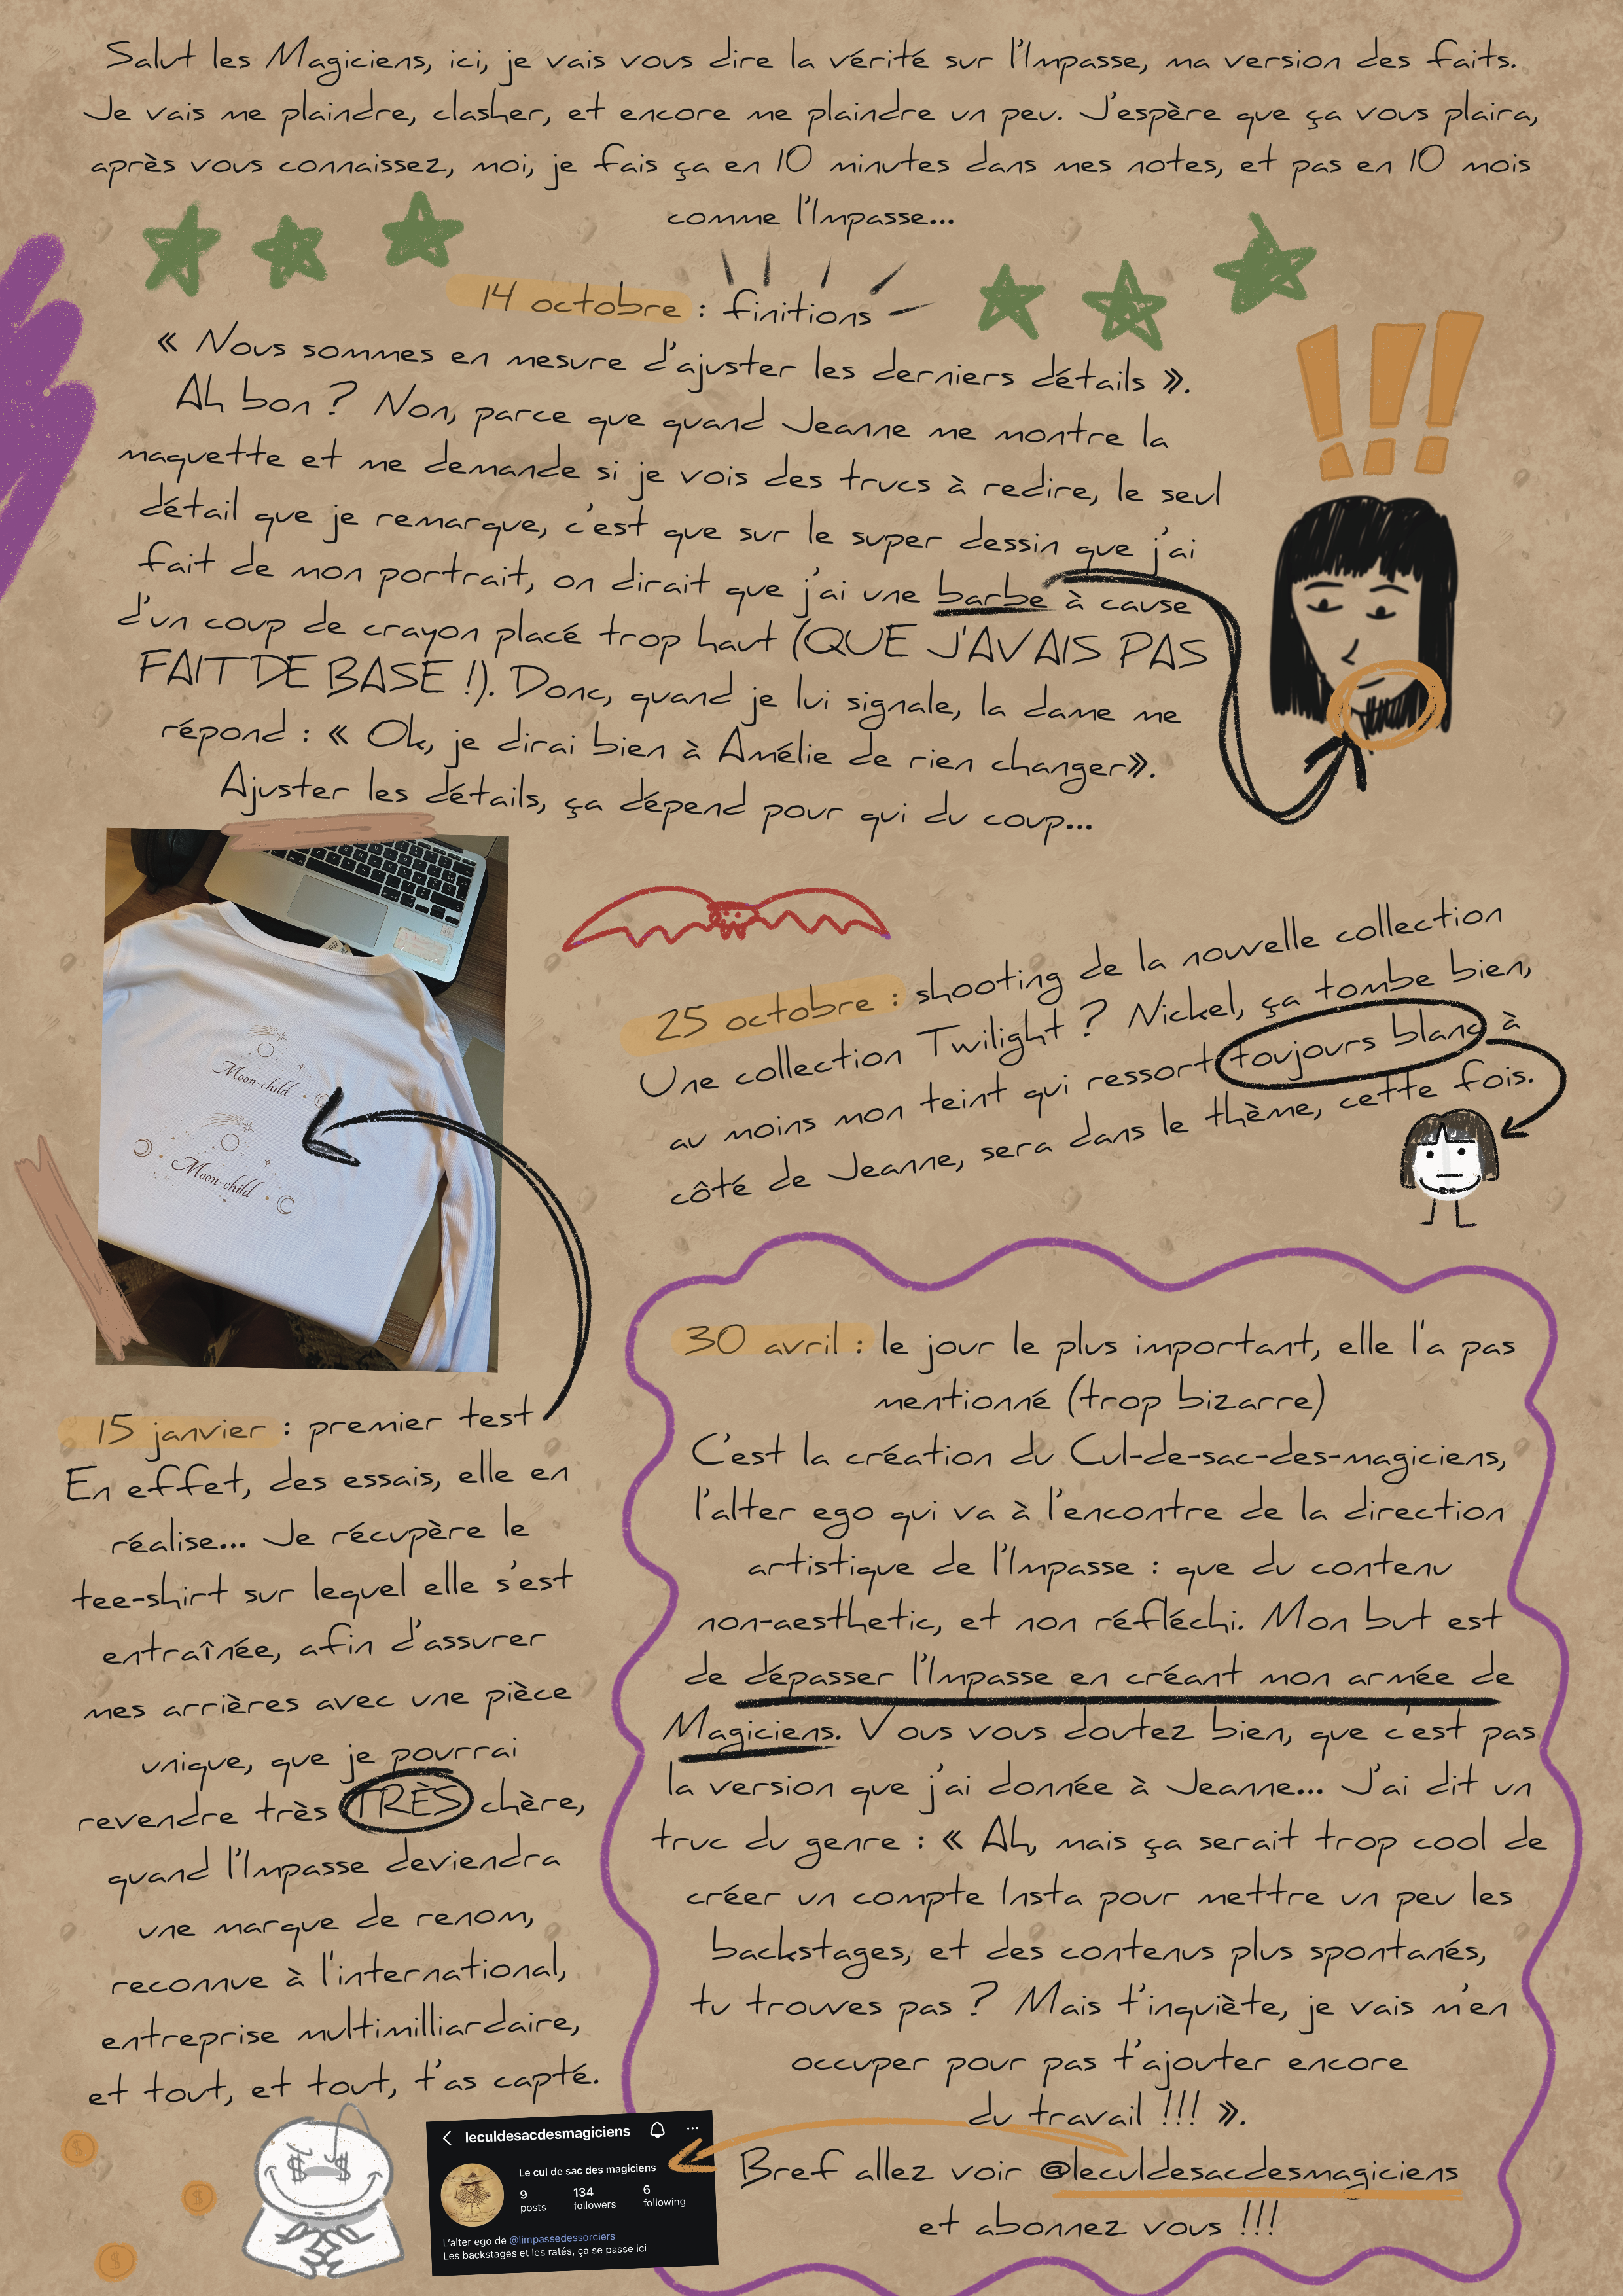 Salut les Magiciens, ici, je vais vous dire la vérité sur l'Impasse, ma version des faits.
Je vais me plaindre, clasher, et encore me plaindre un peu. J'espère que ça vous plaira,
après vous connaissez, moi, je fais ça en 10 minutes dans mes notes, et pas en 10 mois
comme l'Impasse...
14 octobre : finitions
« Nous sommes en mesure d'ajuster les derniers détails ».
Ah bon ? Non, parce que quand Jeanne me montre la
maquette et me demande si je vois des trucs à redire, le seul
détail que je remarque, c'est que sur le super dessin que j'ai
fait de mon portrait, on dirait que j'ai une barbe à cause
d'un coup de crayon placé trop haut (QUE J'AVAIS PAS
FAIT DE BASE !). Donc, quand je lui signale, la dame me
répond : « Ok, je dirai bien à Amélie de rien changer».
Ajuster les détails, ça dépend pour qui du coup...
!!!
Moon-child
Moon-child
25 octobre : shooting de la nouvelle collection
Une collection Twilight ? Nickel, ça tombe bien,
au moins mon teint qui ressort toujours blanc à
côté de Jeanne, sera dans le thème, cette fois.
15 janvier : premier test
En effet, des essais, elle en
réalise... Je récupère le
tee-shirt sur lequel elle s'est
entraînée, afin d'assurer
mes arrières avec une pièce
unique, que je pourrai
revendre très TRÈS chère,
quand l'Impasse deviendra
une marque de renom,
reconnue à l'international,
entreprise multimilliardaire,
et tout, et tout, t'as capté.
30 avril : le jour le plus important, elle l'a pas
mentionné (trop bizarre)
C'est la création du Cul-de-sac-des-magiciens,
l'alter ego qui va à l'encontre de la direction
artistique de l'Impasse : que du contenu
non-aesthetic, et non réfléchi. Mon but est
de dépasser l'Impasse en créant mon armée de
Magiciens. Vous vous doutez bien, que c'est pas
la version que j'ai donnée à Jeanne... J'ai dit un
truc du genre : « Ah, mais ça serait trop cool de
créer un compte Insta pour mettre un peu les
backstages, et des contenus plus spontanés,
tu trouves pas ? Mais t'inquiète, je vais m'en
occuper pour pas t'ajouter encore
du travail !!! ».
Bref allez voir @leculdesacdesmagiciens
et abonnez vous !!!
leculdesacdesmagiciens
Le cul de sac des magiciens
9 134 6
posts followers following
L'alter ego de @limpassedessorciers
Les backstages et les ratés, ça se passe ici
$ $
$
$
$